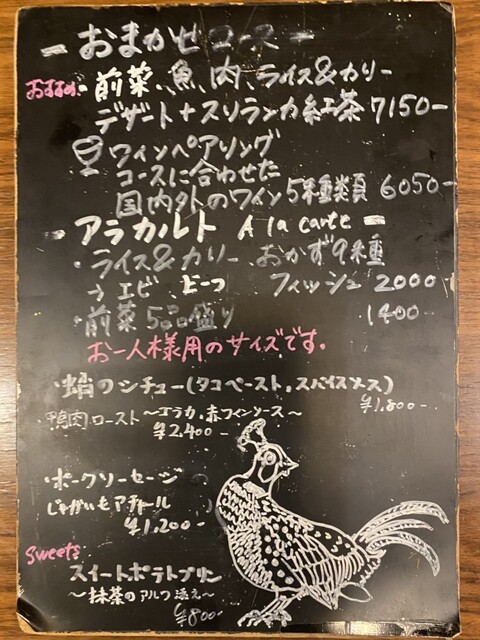 - おまかせコース -
おすすめ. 前菜、魚、肉、ライス&カリー
デザート+スリランカ紅茶 7150-
ワインペアリング
コースに合わせた
国内外のワイン5種類 6050-
- アラカルト A la carte -
・ライス&カリー おかず9種
→エビ、ビーフ フィッシュ 2000
・前菜5品盛り 1400-
お一人様用のサイズです。
・蛸のシチュー(タコペースト,スパイスソース)
¥1,800-
鴨肉ロースト 〜 赤ワインソース〜
¥2,400-
・ポークソーセージ
じゃがいもアチャール
¥1,200-
Sweets
スイートポテトプリン
〜抹茶の 添え〜
¥800-